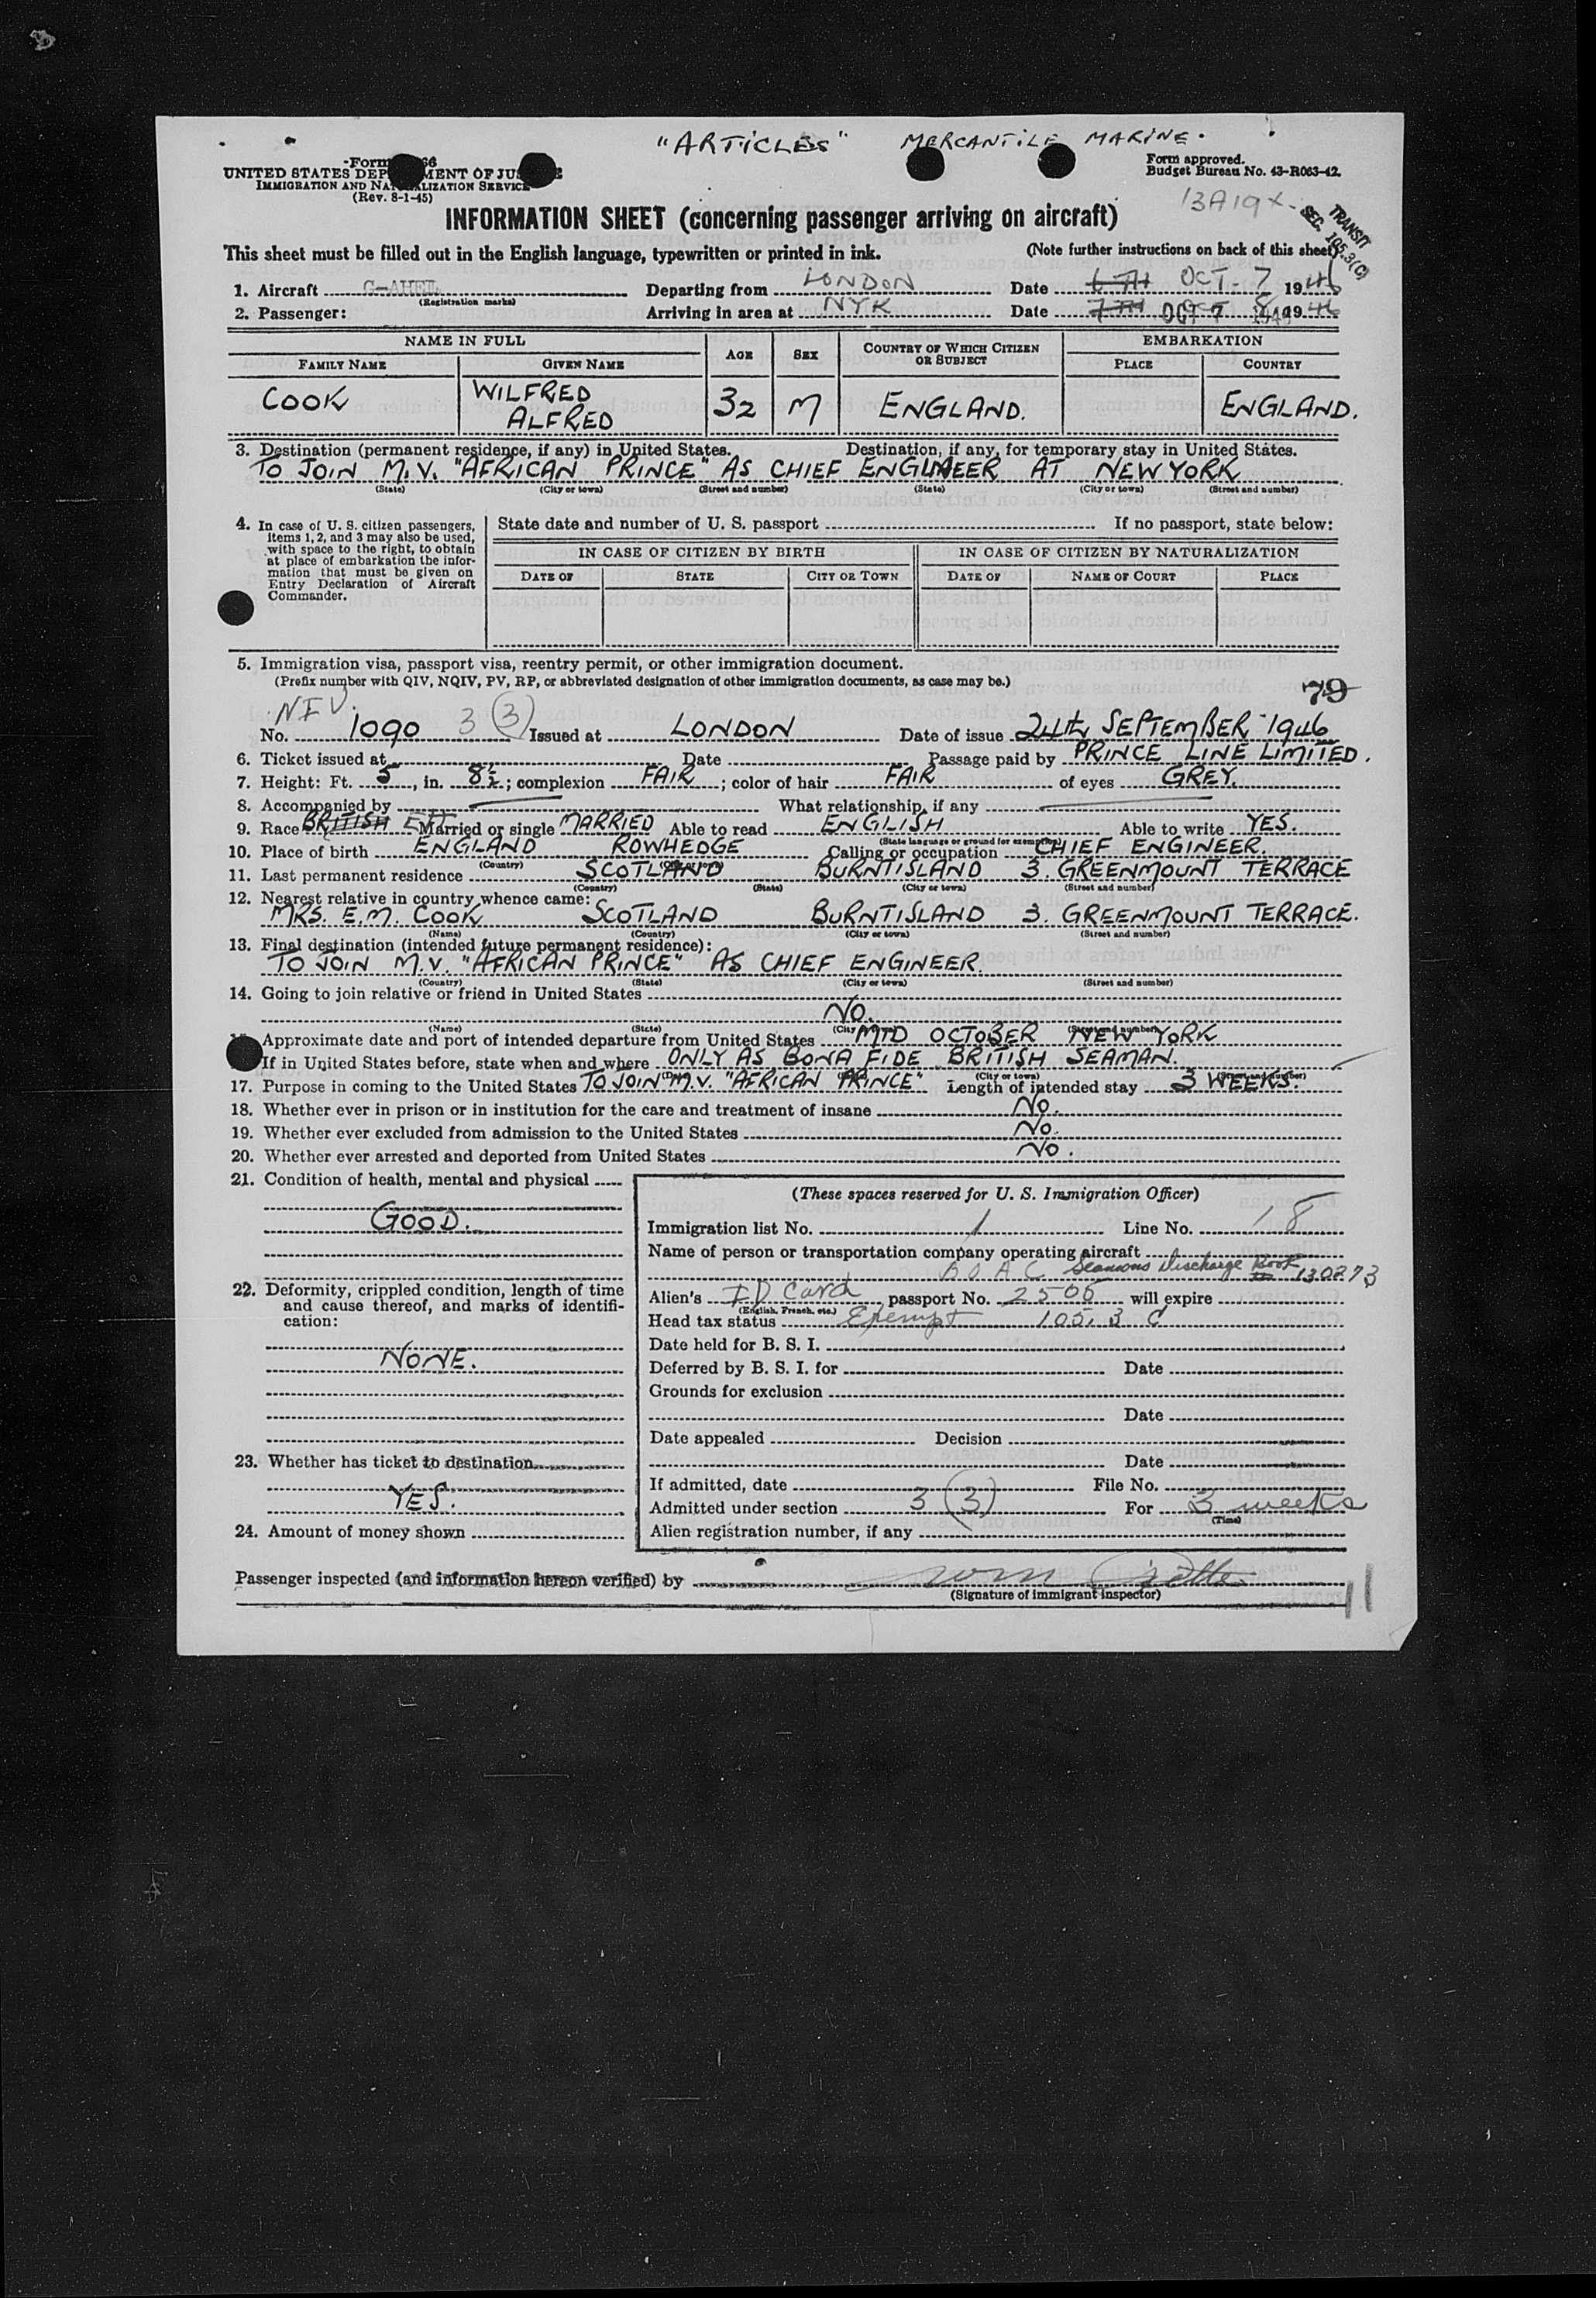 "ARTICLES" MERCANTILE MARINE.
Form
UNITED STATES DEP MENT OF JU
IMMIGRATION AND NA LIZATION SERVICE
(Rev. 8-1-45)
Form approved.
Budget Bureau No. 43-R063-42.
TRANSIT
SEC. 105.3(C)
INFORMATION SHEET (concerning passenger arriving on aircraft)
This sheet must be filled out in the English language, typewritten or printed in ink. (Note further instructions on back of this sheet)
1. Aircraft (Registration marks) Departing from LONDON Date 6TH OCT. 7 1946
2. Passenger: Arriving in area at NYK Date 7TH OCT 7 8 1946
NAME IN FULL AGE SEX COUNTRY OF WHICH CITIZEN OR SUBJECT EMBARKATION
FAMILY NAME GIVEN NAME PLACE COUNTRY
COOK WILFRED ALFRED 32 M ENGLAND. ENGLAND.
3. Destination (permanent residence, if any) in United States. Destination, if any, for temporary stay in United States.
TO JOIN M.V. "AFRICAN PRINCE" AS CHIEF ENGINEER AT NEW YORK
(State) (City or town) (Street and number) (State) (City or town) (Street and number)
4. In case of U. S. citizen passengers,
items 1, 2, and 3 may also be used,
with space to the right, to obtain
at place of embarkation the infor-
mation that must be given on
Entry Declaration of Aircraft
Commander.
State date and number of U. S. passport If no passport, state below:
IN CASE OF CITIZEN BY BIRTH IN CASE OF CITIZEN BY NATURALIZATION
DATE OF STATE CITY OR TOWN DATE OF NAME OF COURT PLACE
5. Immigration visa, passport visa, reentry permit, or other immigration document.
(Prefix number with QIV, NQIV, PV, RP, or abbreviated designation of other immigration documents, as case may be.)
79
NIV.
No. 1090 3 (3) Issued at LONDON Date of issue 24th SEPTEMBER 1946
6. Ticket issued at Date Passage paid by PRINCE LINE LIMITED.
7. Height: Ft. 5, in. 8½; complexion FAIR; color of hair FAIR of eyes GREY.
8. Accompanied by What relationship, if any
9. Race BRITISH Married or single MARRIED Able to read ENGLISH Able to write YES.
(State language or ground for exemption)
10. Place of birth ENGLAND ROWHEDGE Calling or occupation CHIEF ENGINEER.
(Country) (City or town)
11. Last permanent residence SCOTLAND BURNTISLAND 3. GREENMOUNT TERRACE
(Country) (State) (City or town) (Street and number)
12. Nearest relative in country whence came:
MRS. E.M. COOK SCOTLAND BURNTISLAND 3. GREENMOUNT TERRACE.
(Name) (Country) (City or town) (Street and number)
13. Final destination (intended future permanent residence):
TO JOIN M.V. "AFRICAN PRINCE" AS CHIEF ENGINEER.
(Country) (State) (City or town) (Street and number)
14. Going to join relative or friend in United States
NO.
(Name) (State) (City or town) (Street and number)
Approximate date and port of intended departure from United States MID OCTOBER NEW YORK
If in United States before, state when and where ONLY AS BONA FIDE BRITISH SEAMAN.
(City or town) (Street and number)
17. Purpose in coming to the United States TO JOIN M.V. "AFRICAN PRINCE" Length of intended stay 3 WEEKS.
18. Whether ever in prison or in institution for the care and treatment of insane NO.
19. Whether ever excluded from admission to the United States NO.
20. Whether ever arrested and deported from United States NO.
21. Condition of health, mental and physical
GOOD.
22. Deformity, crippled condition, length of time
and cause thereof, and marks of identifi-
cation:
NONE.
23. Whether has ticket to destination
YES.
24. Amount of money shown
(These spaces reserved for U. S. Immigration Officer)
Immigration list No. 1 Line No. 18
Name of person or transportation company operating aircraft
BOAC Seamans Discharge Book 130273
Alien's ID Card passport No. 2506 will expire
(English, French, etc.)
Head tax status Exempt 105.3 C
Date held for B. S. I.
Deferred by B. S. I. for Date
Grounds for exclusion
Date
Date appealed Decision
Date
If admitted, date File No.
Admitted under section 3 (3) For 3 weeks
(Time)
Alien registration number, if any
Passenger inspected (and information hereon verified) by
(Signature of immigrant inspector)
11